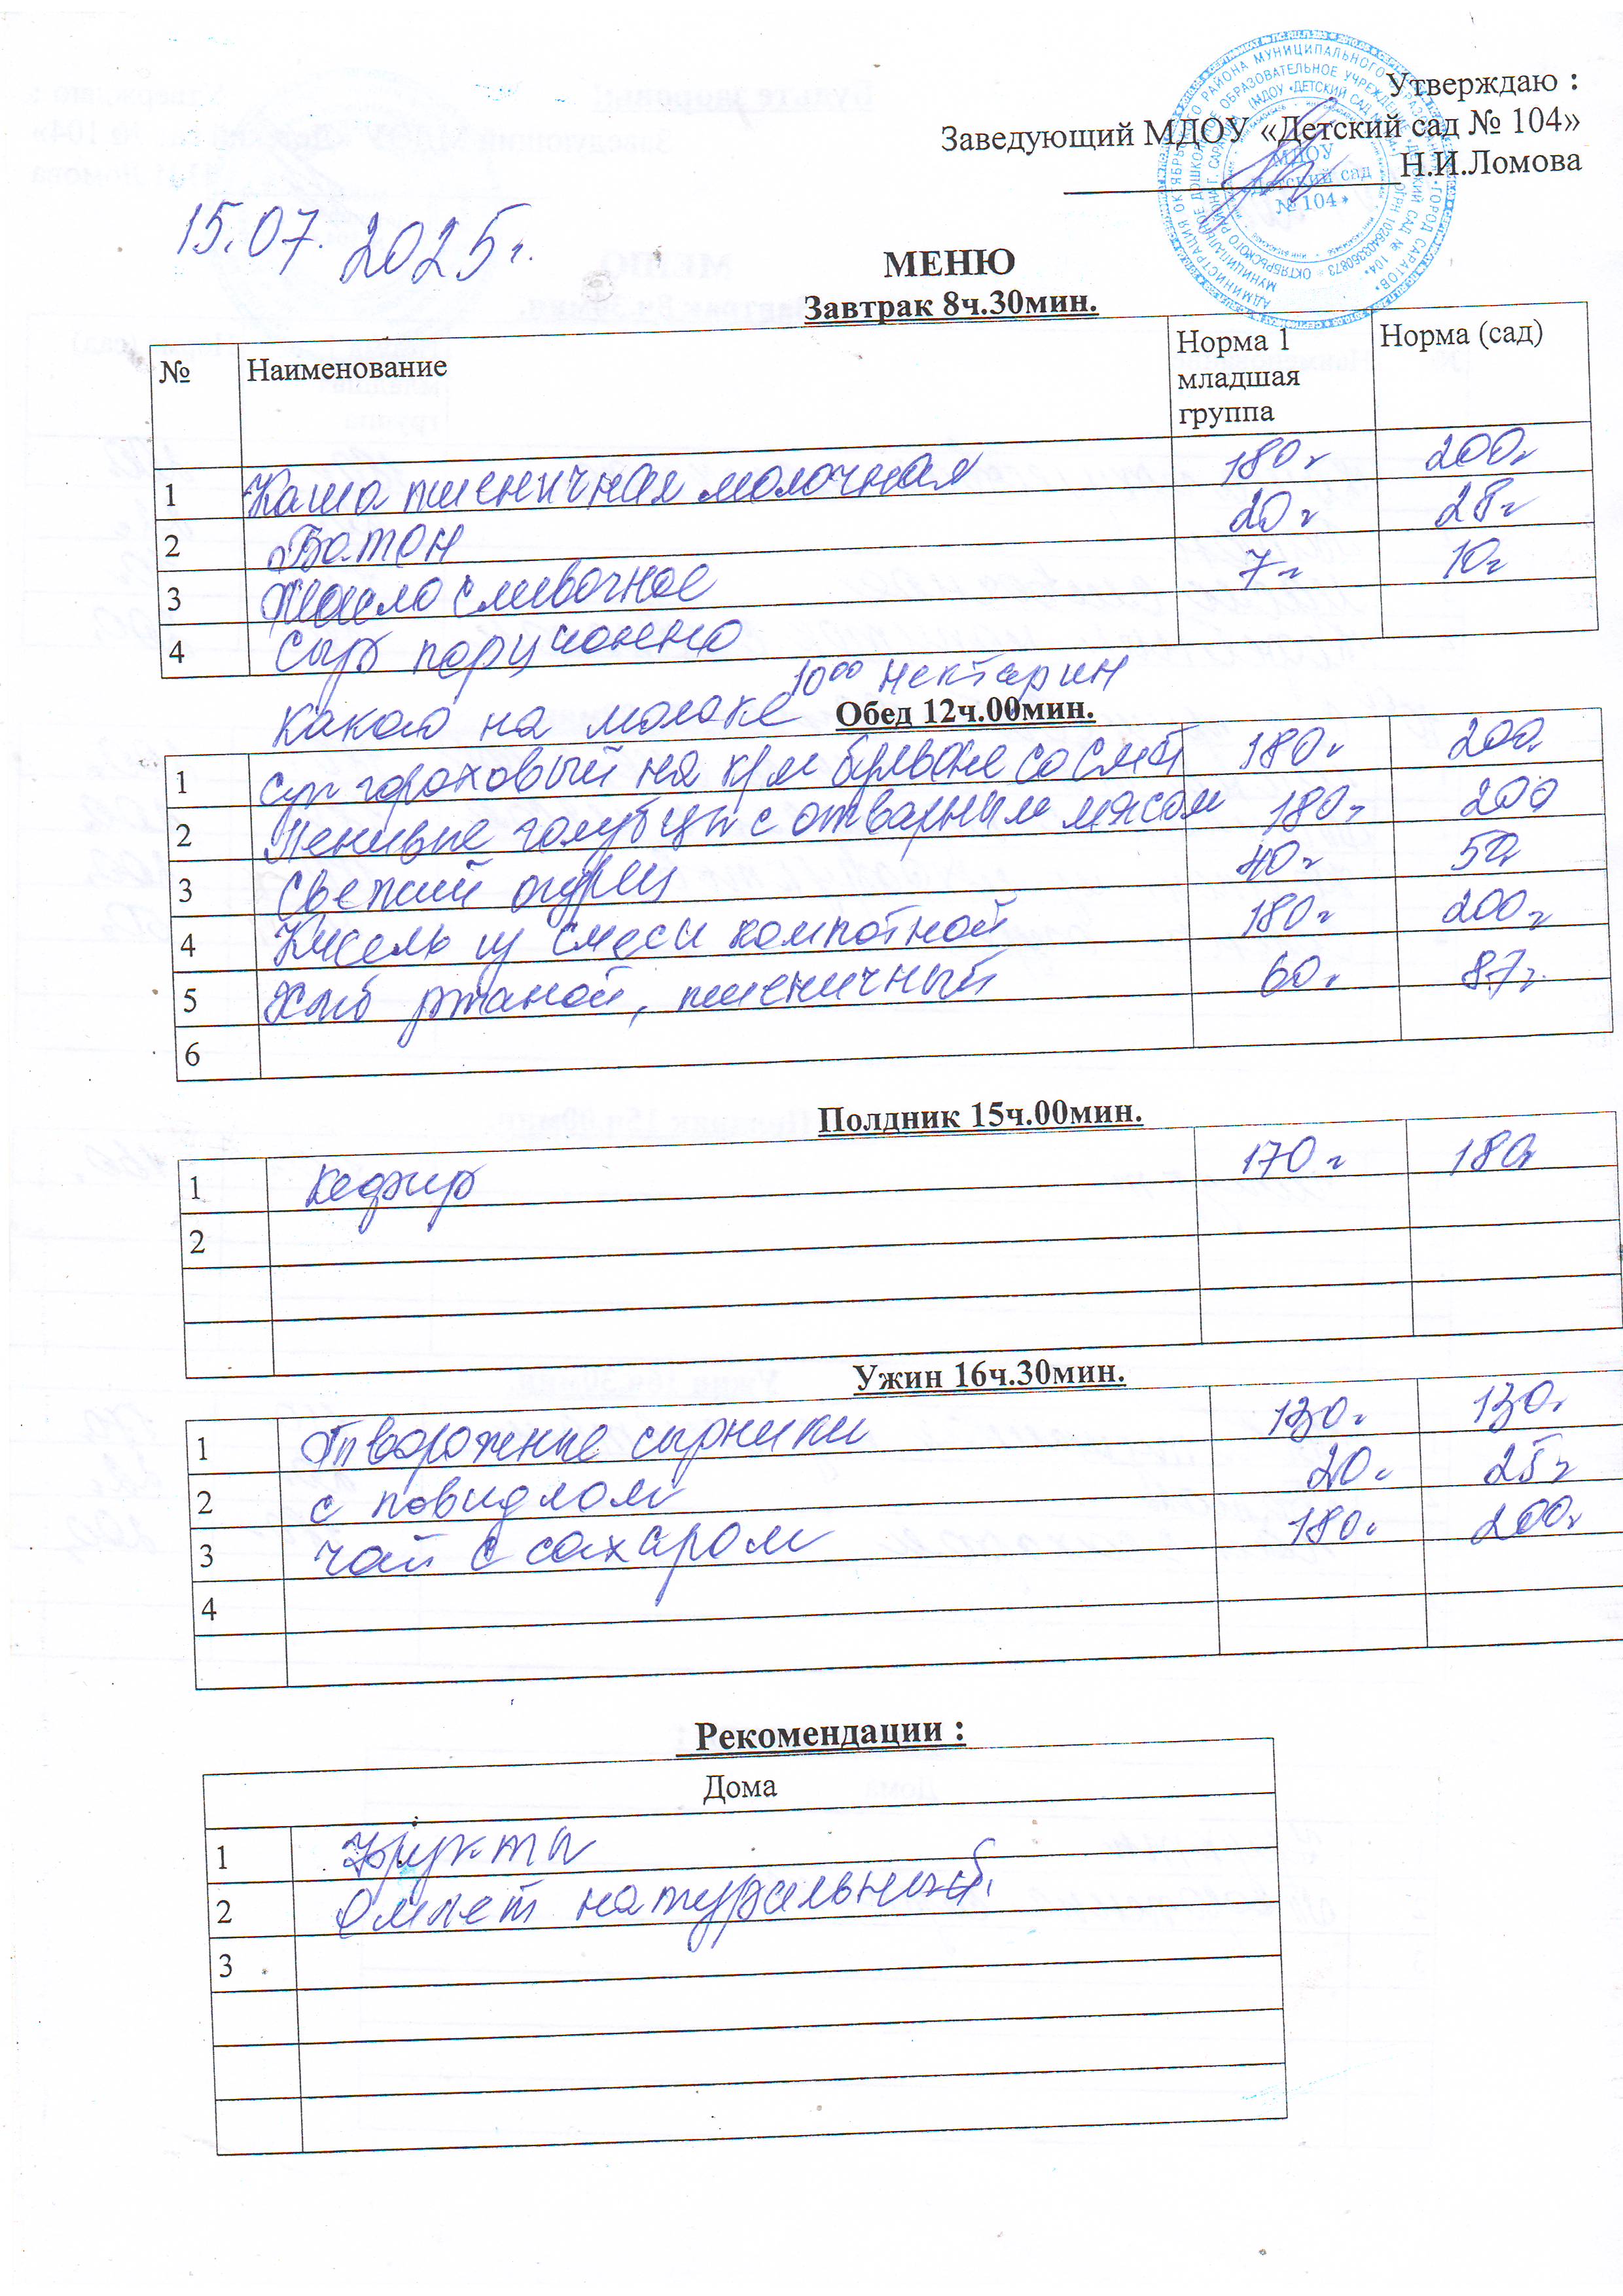 Утверждаю :
Заведующий МДОУ «Детский сад № 104»
Н.И.Ломова
МДОУ
Детский сад
№ 104
15.07.2025г.
МЕНЮ
Завтрак 8ч.30мин.
№ Наименование Норма 1 младшая группа Норма (сад)
1 Каша пшеничная молочная 180г 200г
2 Батон 20г 28г
3 Масло сливочное 7г 10г
4 Сыр порционно
10⁰⁰ нектарин
Какао на молоке
Обед 12ч.00мин.
1 суп гороховый на кр/м бульоне со смет 180г 200
2 Ленивые голубцы с отварным мясом 180г 200
3 Свежий огурец 40г 50г
4 Кисель из смеси компотной 180г 200г
5 Хлеб ржаной, пшеничный 60г 87г
6
Полдник 15ч.00мин.
1 кефир 170г 180г
2
Ужин 16ч.30мин.
1 Творожные сырники 130г 130г
2 с повидлом 20г 25г
3 чай с сахаром 180г 200г
4
Рекомендации :
Дома
1 Фрукты
2 Омлет натуральный.
3